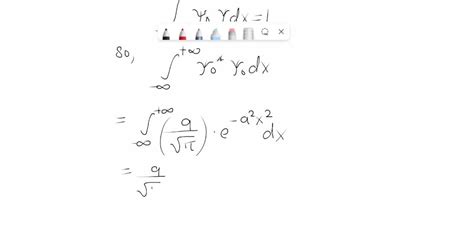 ∫ ψ₀ ψ dx = 1
So,
∫_{-∞}^{+∞} ψ₀* ψ₀ dx
= ∫_{-∞}^{+∞} (a/√π) · e^{-a²x²} dx
= a/√π